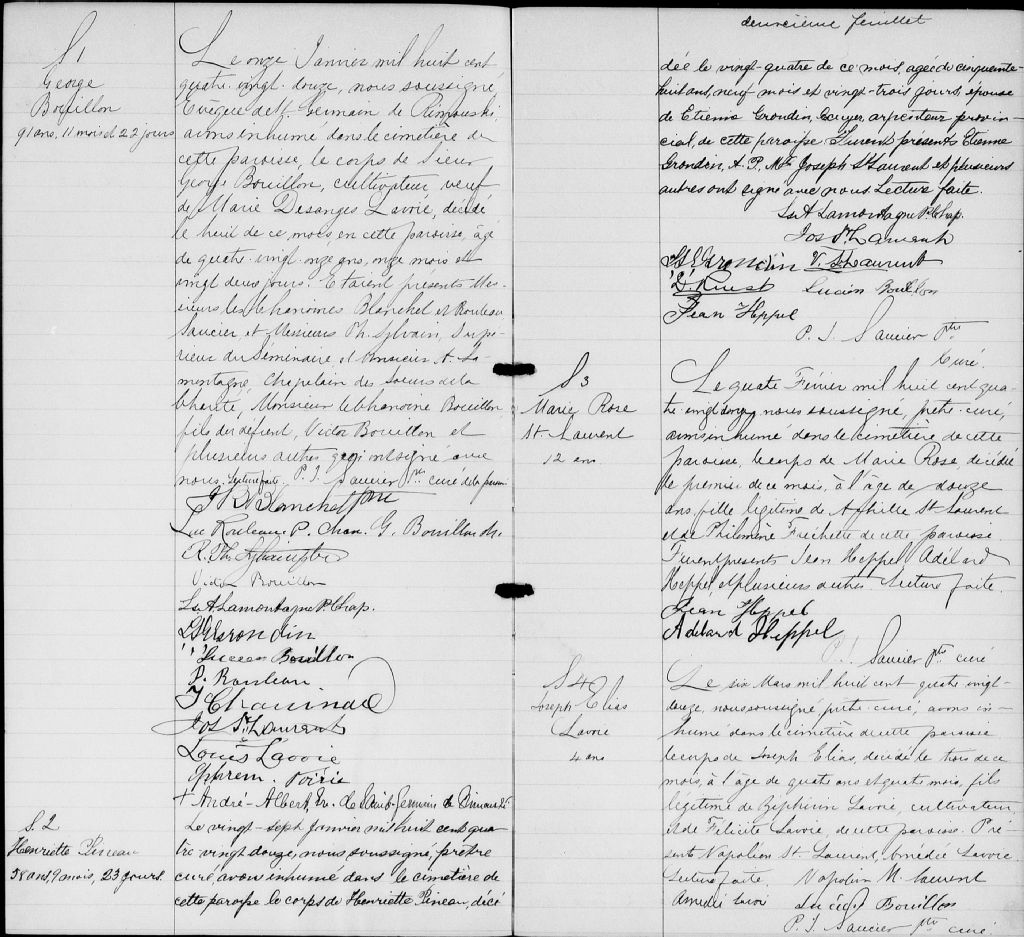 S 1
George
Bouillon
91 ans, 11 mois et 22 jours
Le onze Janvier mil huit cent
quatre-vingt-douze, nous soussigné,
Evêque de St Germain de Rimouski,
avons inhumé dans le cimetière de
cette paroisse, le corps de Sieur
George Bouillon, cultivateur veuf
de Marie Desanges Lavoie, décédé
le huit de ce mois, en cette paroisse, âgé
de quatre-vingt-onze ans, onze mois et
vingt deux jours. Etaient présents Mes-
sieurs les chanoines Blanchet et Rouleau
Saucier et Messieurs Ph. Sylvain, Supé-
rieur du Séminaire et Monsieur A. La-
montagne, Chapelain des Soeurs de la
Charité, Monsieur le Chanoine Bouillon
fils du défunt, Victor Bouillon et
plusieurs autres qui ont signé avec
nous. Lecture faite. P. J. Saucier Ptre curé de la paroisse
Luc Rouleau P. Chan. G. Bouillon Ch.
Victor Bouillon
Ls. A. Lamontagne P. Chap.
Grondin
Lucien Bouillon
P. Rouleau
Jos St Laurent
Louis Lavoie
Ephrem. Poirier
+ André-Albert, Ev. de Saint-Germain de Rimouski
S. 2
Henriette Pineau
58 ans, 9 mois, 23 jours.
Le vingt-sept Janvier mil huit cent qua-
tre-vingt douze, nous soussigné, prêtre
curé, avons inhumé dans le cimetière de
cette paroisse le corps de Henriette Pineau, décé
deuxième feuillet
dée le vingt-quatre de ce mois, agée de cinquante-
huit ans, neuf mois et vingt-trois jours, épouse
de Etienne Grondin, Ecuyer, arpenteur provin-
cial, de cette paroisse. Furent présents Etienne
Grondin, A. P., Mtre Joseph St Laurent et plusieurs
autres ont signé avec nous. Lecture faite.
Ls. A. Lamontagne P. Chap.
Jos St Laurent
Grondin V. St Laurent
D. Ruest Lucien Bouillon
Jean Heppel
P. J. Saucier Ptre
Curé.
S 3
Marie Rose
St. Laurent
12 ans
Le quatre Février mil huit cent qua-
tre-vingt douze, nous soussigné, prêtre-curé,
avons inhumé dans le cimetière de cette
paroisse, le corps de Marie Rose, décédée
le premier de ce mois, à l'âge de douze
ans, fille légitime de Achille St Laurent
et de Philomène Fréchette de cette paroisse.
Furent présents Jean Heppel Adélard
Heppel et plusieurs autres. Lecture faite.
Jean Heppel
Adélard Heppel
P. J. Saucier ptre curé
S 4
Joseph Elias
Lavoie
4 ans
Le six Mars mil huit cent quatre vingt-
douze, nous soussigné prêtre-curé, avons in-
humé dans le cimetière de cette paroisse
le corps de Joseph Elias, décédé le trois de ce
mois, à l'âge de quatre ans et quatre mois, fils
légitime de Zéphirin Lavoie cultivateur
et de Félicité Lavoie, de cette paroisse. Pré-
sents Napoléon St. Laurent, Amédée Lavoie.
Lecture faite. Napoléon St. Laurent
Amédée Lavoie Lucien Bouillon
P. J. Saucier ptre curé